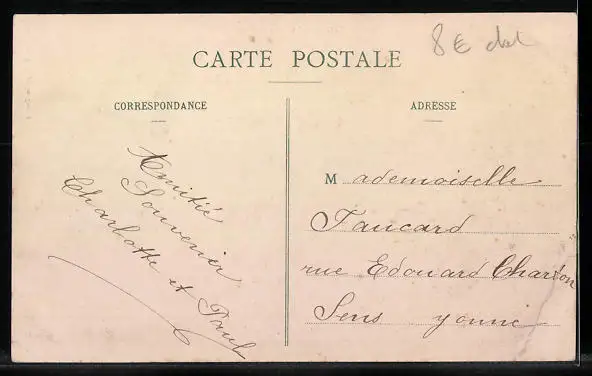 CARTE POSTALE
8 €
CORRESPONDANCE
Amitié
Souvenir
Charlotte et Paul
ADRESSE
Mademoiselle
Faucard
rue Edouard Charton
Sens yonne